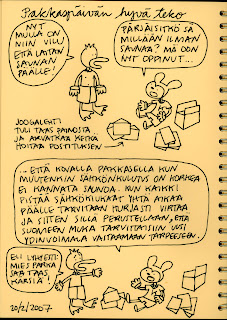 Pakkaspäivän hyvä teko
NYT
MULLA ON
NIIN VILU
ETTÄ LAITAN
SAUNAN
PÄÄLLE!
PÄRJÄISITKÖ SÄ
MILLÄÄN ILMAN
SAUNAA? MÄ OON
NYT OPPINUT...
JOOGALEHTI
TULI TAAS PAINOSTA
JA ARVATKAA KETKÄ
HOITAA POSTITUKSEN
... ETTÄ KOVALLA PAKKASELLA KUN
MUUTENKIN SÄHKÖNKULUTUS ON KORKEA
EI KANNATA SAUNOA. KUN KAIKKI
PISTÄÄ SÄHKÖKIUKAAT YHTÄ AIKAA
PÄÄLLE TARVITAAN HURJASTI VIRTAA
JA SITTEN SILLÄ PERUSTELLAAN, ETTÄ
SUOMEEN MUKA TARVITTAISIIN UUSI
YDINVOIMALA VASTAAMAAN TARPEESEEN.
ELI LYHYESTI:
MIES PARKA
SAA TAAS
KÄRSIÄ!
20/2/2007